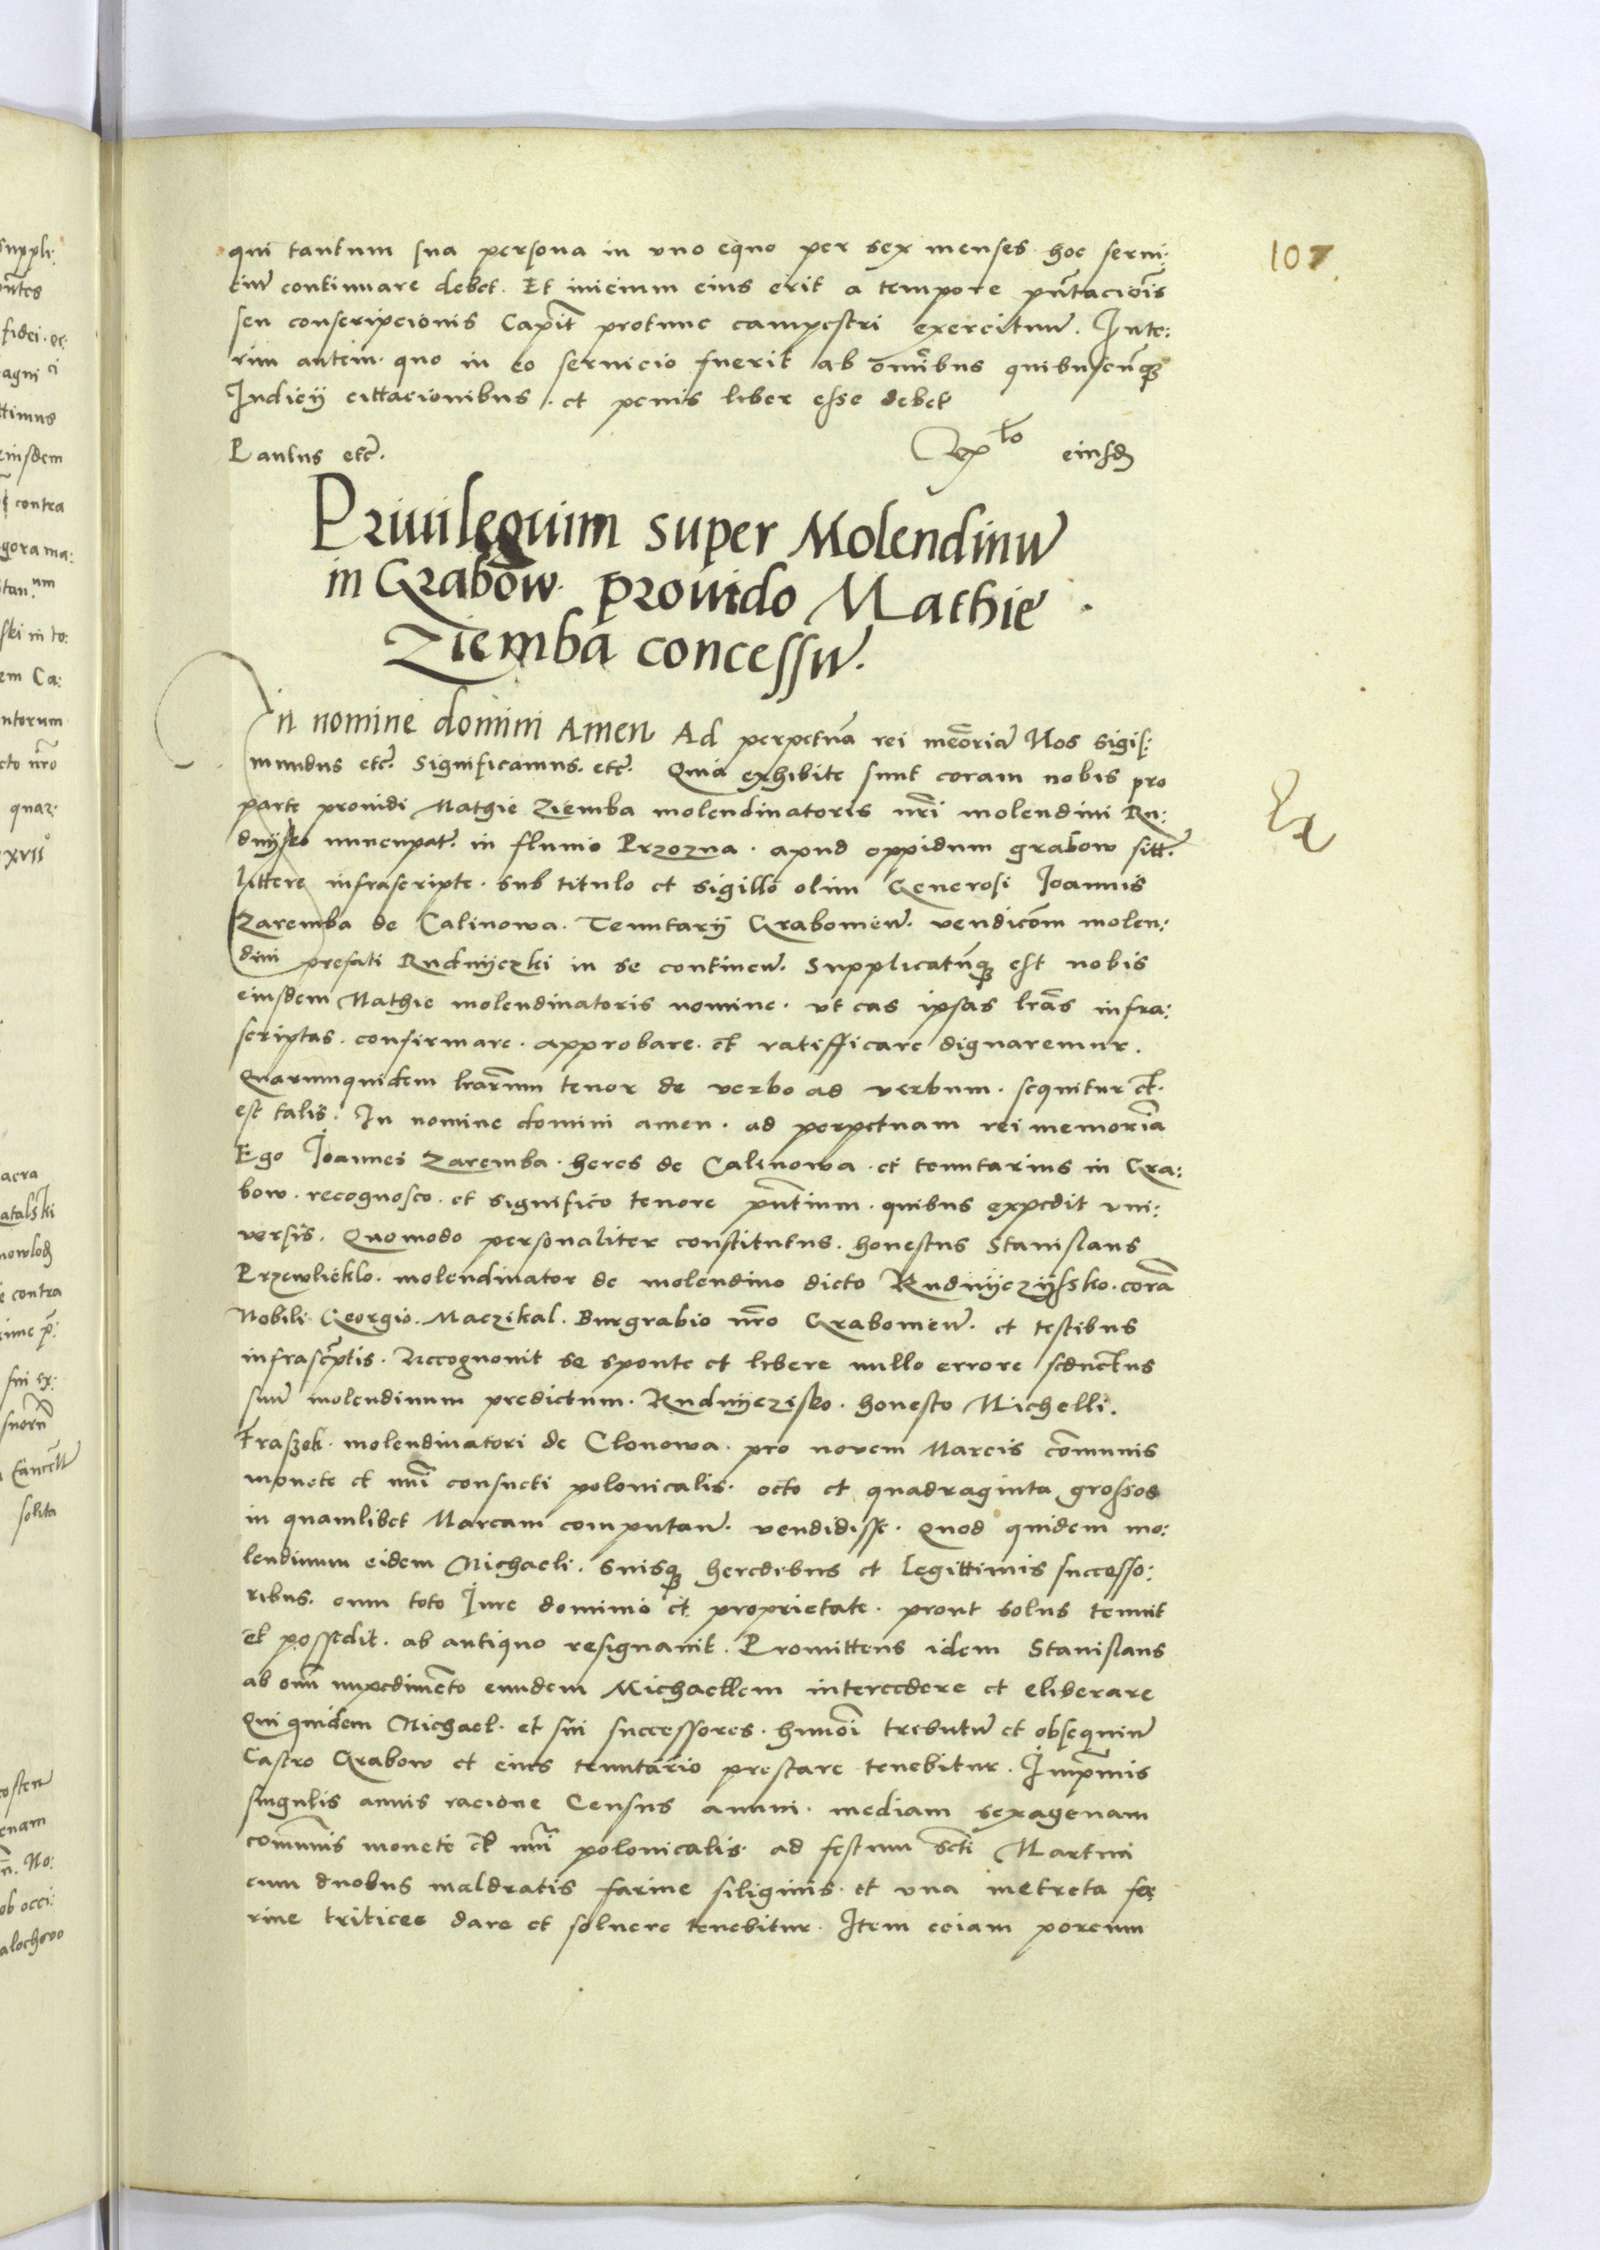 107
qui tantum sua persona in uno equo per sex menses hoc servi:
tiũ continuare debet. Et inicium eius erit a tempore pñtacioĩs
seu conscripcionis Capĩt protunc campestri exercituũ. Inte:
rim autem quo in eo servicio fuerit ab oĩbus quibuscũqz
Iudicij cittacionibus. et penis liber esse debet
Pautus etc̃. eiusd̃
Privilegium super Molendinũ
in Grabow. provido Mathie
Ziemba concessũ.
In nomine domini Amen Ad perpetuã rei meõriã Nos Sigis:
mundus etc̃. Significamus. etc̃. Quia exhibite sunt coram nobis pro
parte providi Mathie Ziemba molendinatoris nr̃i molendini Ru:
dnijsko nuncupat̃. in fluvio Przozna. apud oppidum grabow sitt̃.
littere infrascripte. sub titulo et sigillo olim Generosi Joannis
Zaremba de Calinowa. Tenutarij Grabovieñ. vendicõm molen:
dini prefati Rudnijczki in se contineñ. Supplicatũqz est nobis
eiusdem Mathie molendinatoris nomine. ut eas ipsas lr̃as infra:
scriptas. confirmare. approbare. et ratifficare dignaremur.
Quarumquidem lr̃arum tenor de verbo ad verbum. sequitur et.
est talis. In nomine domini amen. ad perpetuam rei memoriã
Ego Joannes Zaremba. heres de Calinowa. et tenutarius in Gra:
bow. recognosco. et significo tenore pñtium. quibus expedit uni:
versis. Quomodo personaliter constitutus. honestus Stanislaus
Przewlieklo. molendinator de molendino dicto Rudnijczijsko. corã
Nobili Georgio. Maczikal. Burgrabio nr̃o Grabovieñ. et testibus
infrascr̃ptis. Recognovit se sponte et libere nullo errore seductus
suũ molendinum predictum. Rudnijczisko. honesto Michelli.
Fraszek. molendinatori de Clonowa. pro novem Marcis com̃unis
monete et nũi consueti polonicalis. octo et quadraginta grossos
in quamlibet Marcam computañ. vendidisse. Quod quidem mo:
lendinum eidem Michaeli. suisqz heredibus et legittimis successo:
ribus. cum toto Jure dominio et proprietate. prout solus tenuit
et possedit. ab antiquo resignavit. Promittens idem Stanislaus
ab om̃i impedimẽto eundem Michaellem intercedere et eliberare
Qui quidem Michael. et sui successores. hmõi tributũ et obsequiũ
Castro Grabow et eius tenutario prestare tenebitur. Impr̃imis
singulis annis racione Census annui. mediam sexagenam
com̃unis monete et nũi polonicalis. ad festum scti Martini
cum duobus maldratis farine siliginis. et una metreta fa:
rine tritices dare et solvere tenebitur. Item eciam porcum